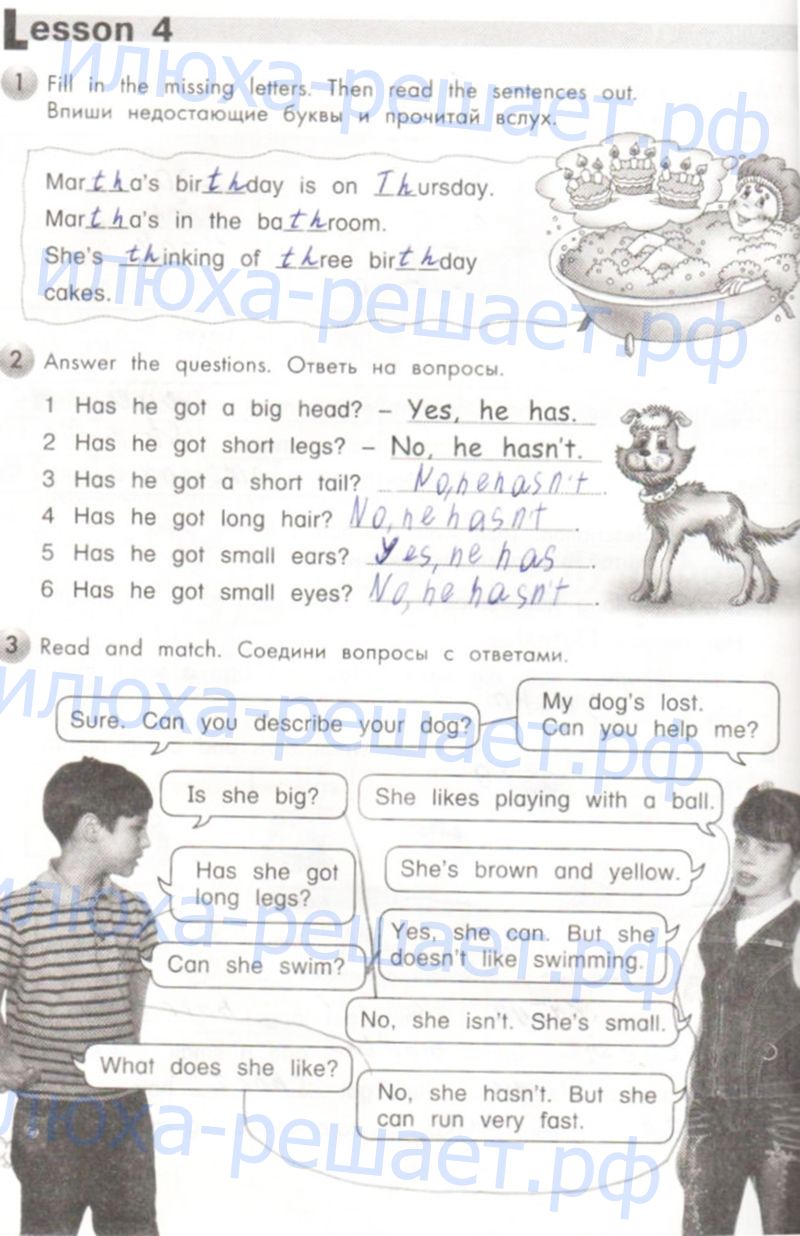 Lesson 4
1 Fill in the missing letters. Then read the sentences out.
Впиши недостающие буквы и прочитай вслух.
Martha's birthday is on Thursday.
Martha's in the bathroom.
She's thinking of three birthday
cakes.
2 Answer the questions. Ответь на вопросы.
1 Has he got a big head? – Yes, he has.
2 Has he got short legs? – No, he hasn't.
3 Has he got a short tail? No, he hasn't.
4 Has he got long hair? No, he hasn't.
5 Has he got small ears? Yes, he has.
6 Has he got small eyes? No, he hasn't.
3 Read and match. Соедини вопросы с ответами.
My dog's lost.
Can you help me?
Sure. Can you describe your dog?
Is she big?
She likes playing with a ball.
Has she got
long legs?
She's brown and yellow.
Can she swim?
Yes, she can. But she
doesn't like swimming.
No, she isn't. She's small.
What does she like?
No, she hasn't. But she
can run very fast.
илюха-решает.рф
илюха-решает.рф
илюха-решает.рф
илюха-решает.рф
илюха-решает.рф